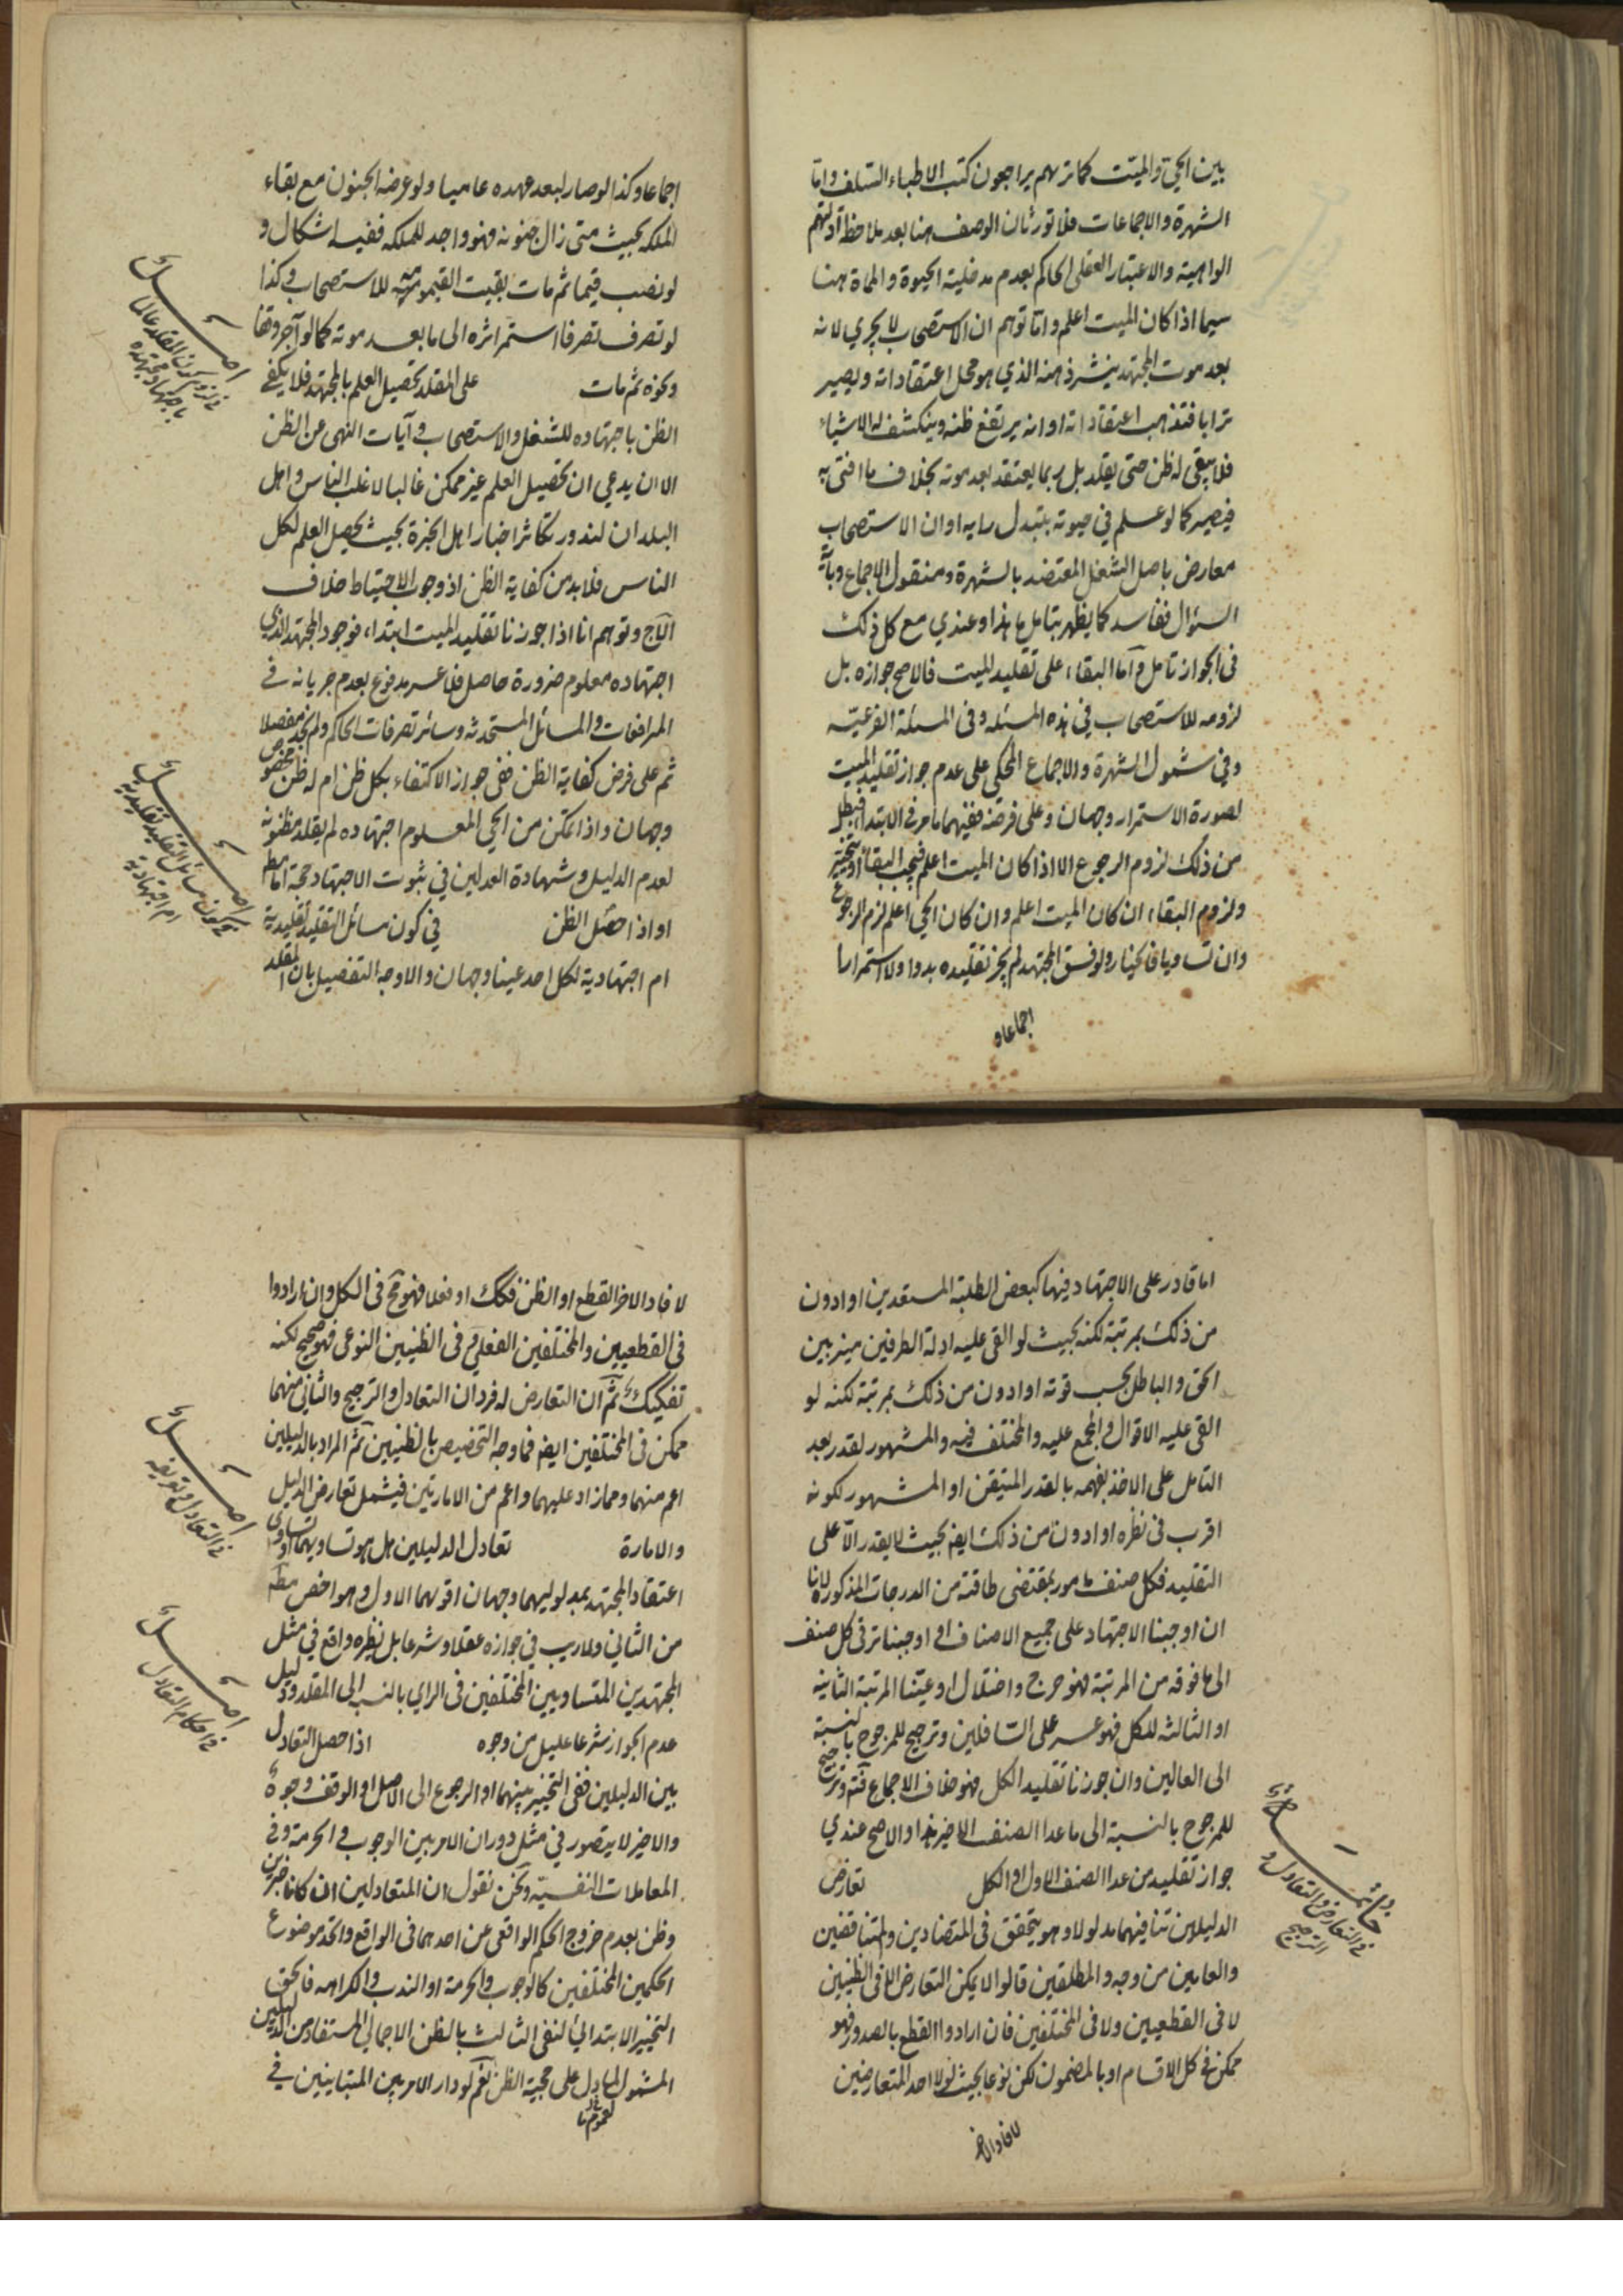 بين الحي والميت كما تريهم يراجعون كتب الاطباء السلف واما
الشهرة والاجماعات فلا تورثان الوصف هنا بعد ملاحظة ادلتهم
الواهية والاعتبار العقلى الحاكم بعدم مدخلية الحيوة والمماة هنا
سيما اذا كان الميت اعلم واما توهم ان الاستصحاب لا يجري لانه
بعد موت المجتهد ينشر ذهنه الذي هو محل اعتقاداته ويصير
ترابا فتذهب اعتقاداته او انه يرتفع ظنه وينكشف له الاشياء
فلا يبقى له ظن حتى يقلد بل ربما يعتقد بعد موته بخلاف ما افتى به
فيصير كما لو علم في حيوته بتبدل رايه او ان الاستصحاب
معارض باصل الشغل المعتضد بالشهرة ومنقول الاجماع وباية
السؤال ففاسد كما يظهر بتامل ما هذا وعندي مع كل ذلك
فى الجواز تامل واما البقاء على تقليد الميت فالاصح جوازه بل
لزومه للاستصحاب في هذه المسئلة وفى المسئلة الفرعية
وفي شمول الشهرة والاجماع المحكي على عدم جواز تقليد الميت
لصورة الاستمرار وجهان وعلى فرضه ففيهما ما مر فى الابتداء فبطل
من ذلك لزوم الرجوع الا اذا كان الميت اعلم فيجب البقاء او يتخير
ولزوم البقاء ان كان الميت اعلم وان كان الحي اعلم لزم الرجوع
وان تساويا فالخيار ولو فسق المجتهد لم يجز تقليده بدوا ولا استمرارا
اجماعا و
اجماعا وكذا لو صار لبعد عهده عاميا ولو عرضه الجنون مع بقاء
الملكة بحيث متى زال جنونه فهو واجد للملكة ففيه اشكال و
لو نصب قيما ثم مات بقيت القيمومية للاستصحاب وكذا
لو تصرف تصرفا استمر اثره الى ما بعد موته كما لو آجر وقفا
ونحوه ثم مات على المقلد تحصيل العلم بالمجتهد فلا يكفي
الظن باجتهاده للشغل والاستصحاب وآيات النهى عن الظن
الا ان يدعي ان تحصيل العلم غير ممكن غالبا لاغلب الناس واهل
البلدان لندور تكاثر اخبار اهل الخبرة بحيث يحصل العلم لكل
الناس فلا بد من كفاية الظن اذ وجوب الاحتياط خلاف
الاج وتوهم انا اذا جوزنا تقليد الميت ابتداء فوجود المجتهد الذي
اجتهاده معلوم ضرورة حاصل فلا عسر مدفوع بعدم جريانه فى
المرافعات والمسائل المستحدثة وسائر تصرفات الحاكم ولم نجد مفصلا
ثم على فرض كفاية الظن ففى جواز الاكتفاء بكل ظن ام له ظن مخصوص
وجهان واذا تمكن من الحي المعلوم اجتهاده لم يقلد مظنونه
لعدم الدليل وشهادة العدلين في ثبوت الاجتهاد حجة اما مط
او اذا حصل الظن في كون مسائل التقليد تقليدية
ام اجتهادية لكل احد عينا وجهان والاوجه التفصيل بان المقلد
اصل
فى لزوم كون المقلد عالما
باجتهاد مجتهده
اصل
فى كون مسائل التقليد تقليدية
ام اجتهادية
اما قادر على الاجتهاد فيها كبعض الطلبة المستعدين او ادون
من ذلك بمرتبة لكنه بحيث لو القى عليه ادلة الطرفين ميز بين
الحق والباطل بحسب قوته او ادون من ذلك بمرتبة لكنه لو
القى عليه الاقوال والمجمع عليه والمختلف فيه والمشهور لقدر بعد
التامل على الاخذ بفهمه بالقدر المتيقن او المشهور لكونه
اقرب فى نظره او ادون من ذلك ايضا بحيث لا يقدر الا على
التقليد فكل صنف مامور بمقتضى طاقته من الدرجات المذكورة لانا
ان اوجبنا الاجتهاد على جميع الاصناف او اوجبنا ترقى كل صنف
الى ما فوقه من المرتبة فهو حرج واختلال او عينا المرتبة الثانية
او الثالثة للكل فهو عسر على السافلين وترجيح للمرجوح بالنسبة
الى العالين وان جوزنا تقليد الكل فهو خلاف الاجماع فتم وترجيح
للمرجوح بالنسبة الى ما عدا الصنف الاخير هذا والاصح عندي
جواز تقليد من عدا الصنف الاول او الكل تعارض
الدليلين تنافيهما مدلولا وهو يتحقق فى المتضادين والمتناقضين
والعامين من وجه والمطلقين قالوا لا يمكن التعارض الا فى الظنيين
لا فى القطعيين ولا فى المختلفين فان ارادوا القطع بالصدور فهو
ممكن فى كل الاقسام او بالمضمون لكن نوعا بحيث لولا احد المتعارضين
لافاد الاخر
خاتمة
فى التعارض والتعادل و
الترجيح
لافاد الاخر القطع او الظن فكك او فعلا فهو مح فى الكل وان ارادوا
فى القطعيين والمختلفين الفعلي وفى الظنيين النوعى فهو صحيح لكنه
تفكيك ثم ان التعارض له فردان التعادل والترجيح والثاني منهما
ممكن فى المختلفين ايضا فما وجه التخصيص بالظنيين ثم المراد بالدليلين
اعم منهما ومما زاد عليهما واعم من الامارتين فيشمل تعارض الدليل
والامارة تعادل الدليلين هل هو تساويهما او تساوى
اعتقاد المجتهد بمدلوليهما وجهان اقويهما الاول وهو اخص مط
من الثاني ولا ريب في جوازه عقلا وشرعا بل نظيره واقع في مثل
المجتهدين المتساويين المختلفين فى الراي بالنسبة الى المقلد ودليل
عدم الجواز شرعا عليل من وجوه اذا حصل التعادل
بين الدليلين ففى التخيير بينهما او الرجوع الى الاصل او الوقف وجوه
والاخير لا يتصور في مثل دوران الامر بين الوجوب والحرمة وفى
المعاملات النفسية ونحن نقول ان المتعادلين ان كانا خبرين
وظن بعدم خروج الحكم الواقعى عن احدهما فى الواقع واتحد موضوع
الحكمين المختلفين كالوجوب والحرمة او الندب والكراهة فالحق
التخيير الابتدائى لنفى الثالث بالظن الاجمالي المستفاد من الدليلين
المشمول لما دل على حجية الظن نعم لو دار الامر بين المتباينين في
اصل
فى التعادل وتعريفه
اصل
فى احكام التعادل